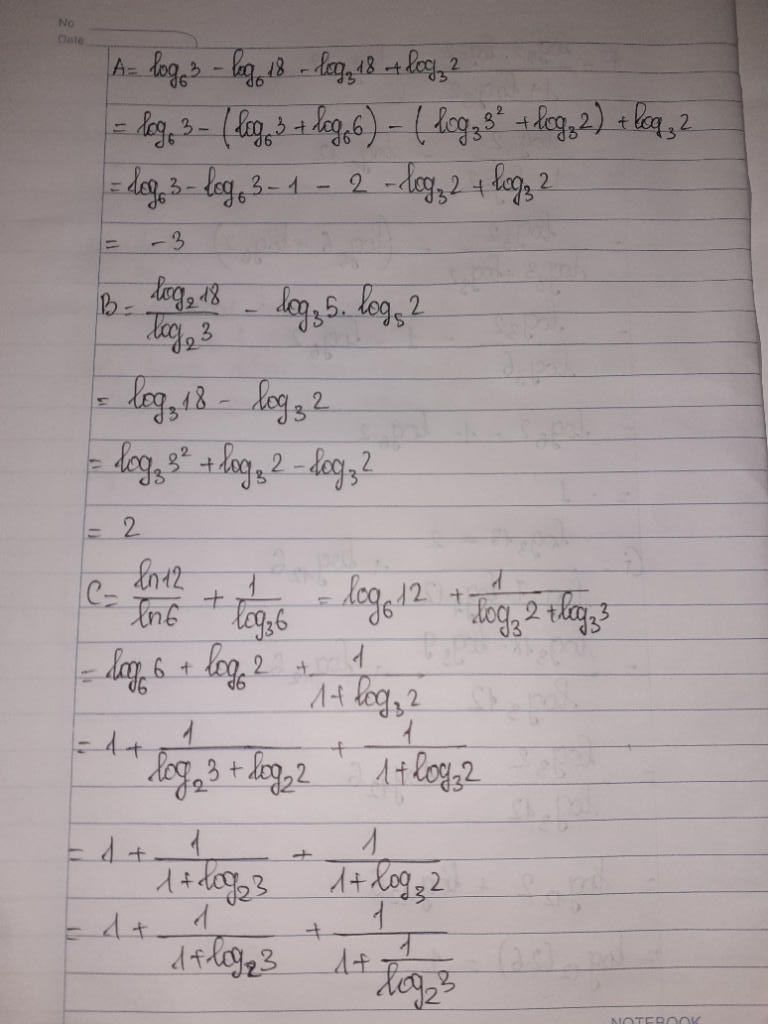 No
Date
A = log₆3 − log₆18 − log₃18 + log₃2
= log₆3 − (log₆3 + log₆6) − (log₃3² + log₃2) + log₃2
= log₆3 − log₆3 − 1 − 2 − log₃2 + log₃2
= −3
B = log₂18 / log₂3 − log₃5 . log₅2
= log₃18 − log₃2
= log₃3² + log₃2 − log₃2
= 2
C = ln12 / ln6 + 1 / log₃6 = log₆12 + 1 / (log₃2 + log₃3)
= log₆6 + log₆2 + 1 / (1 + log₃2)
= 1 + 1 / (log₂3 + log₂2) + 1 / (1 + log₃2)
= 1 + 1 / (1 + log₂3) + 1 / (1 + log₃2)
= 1 + 1 / (1 + log₂3) + 1 / (1 + 1 / log₂3)
NOTEBOOK